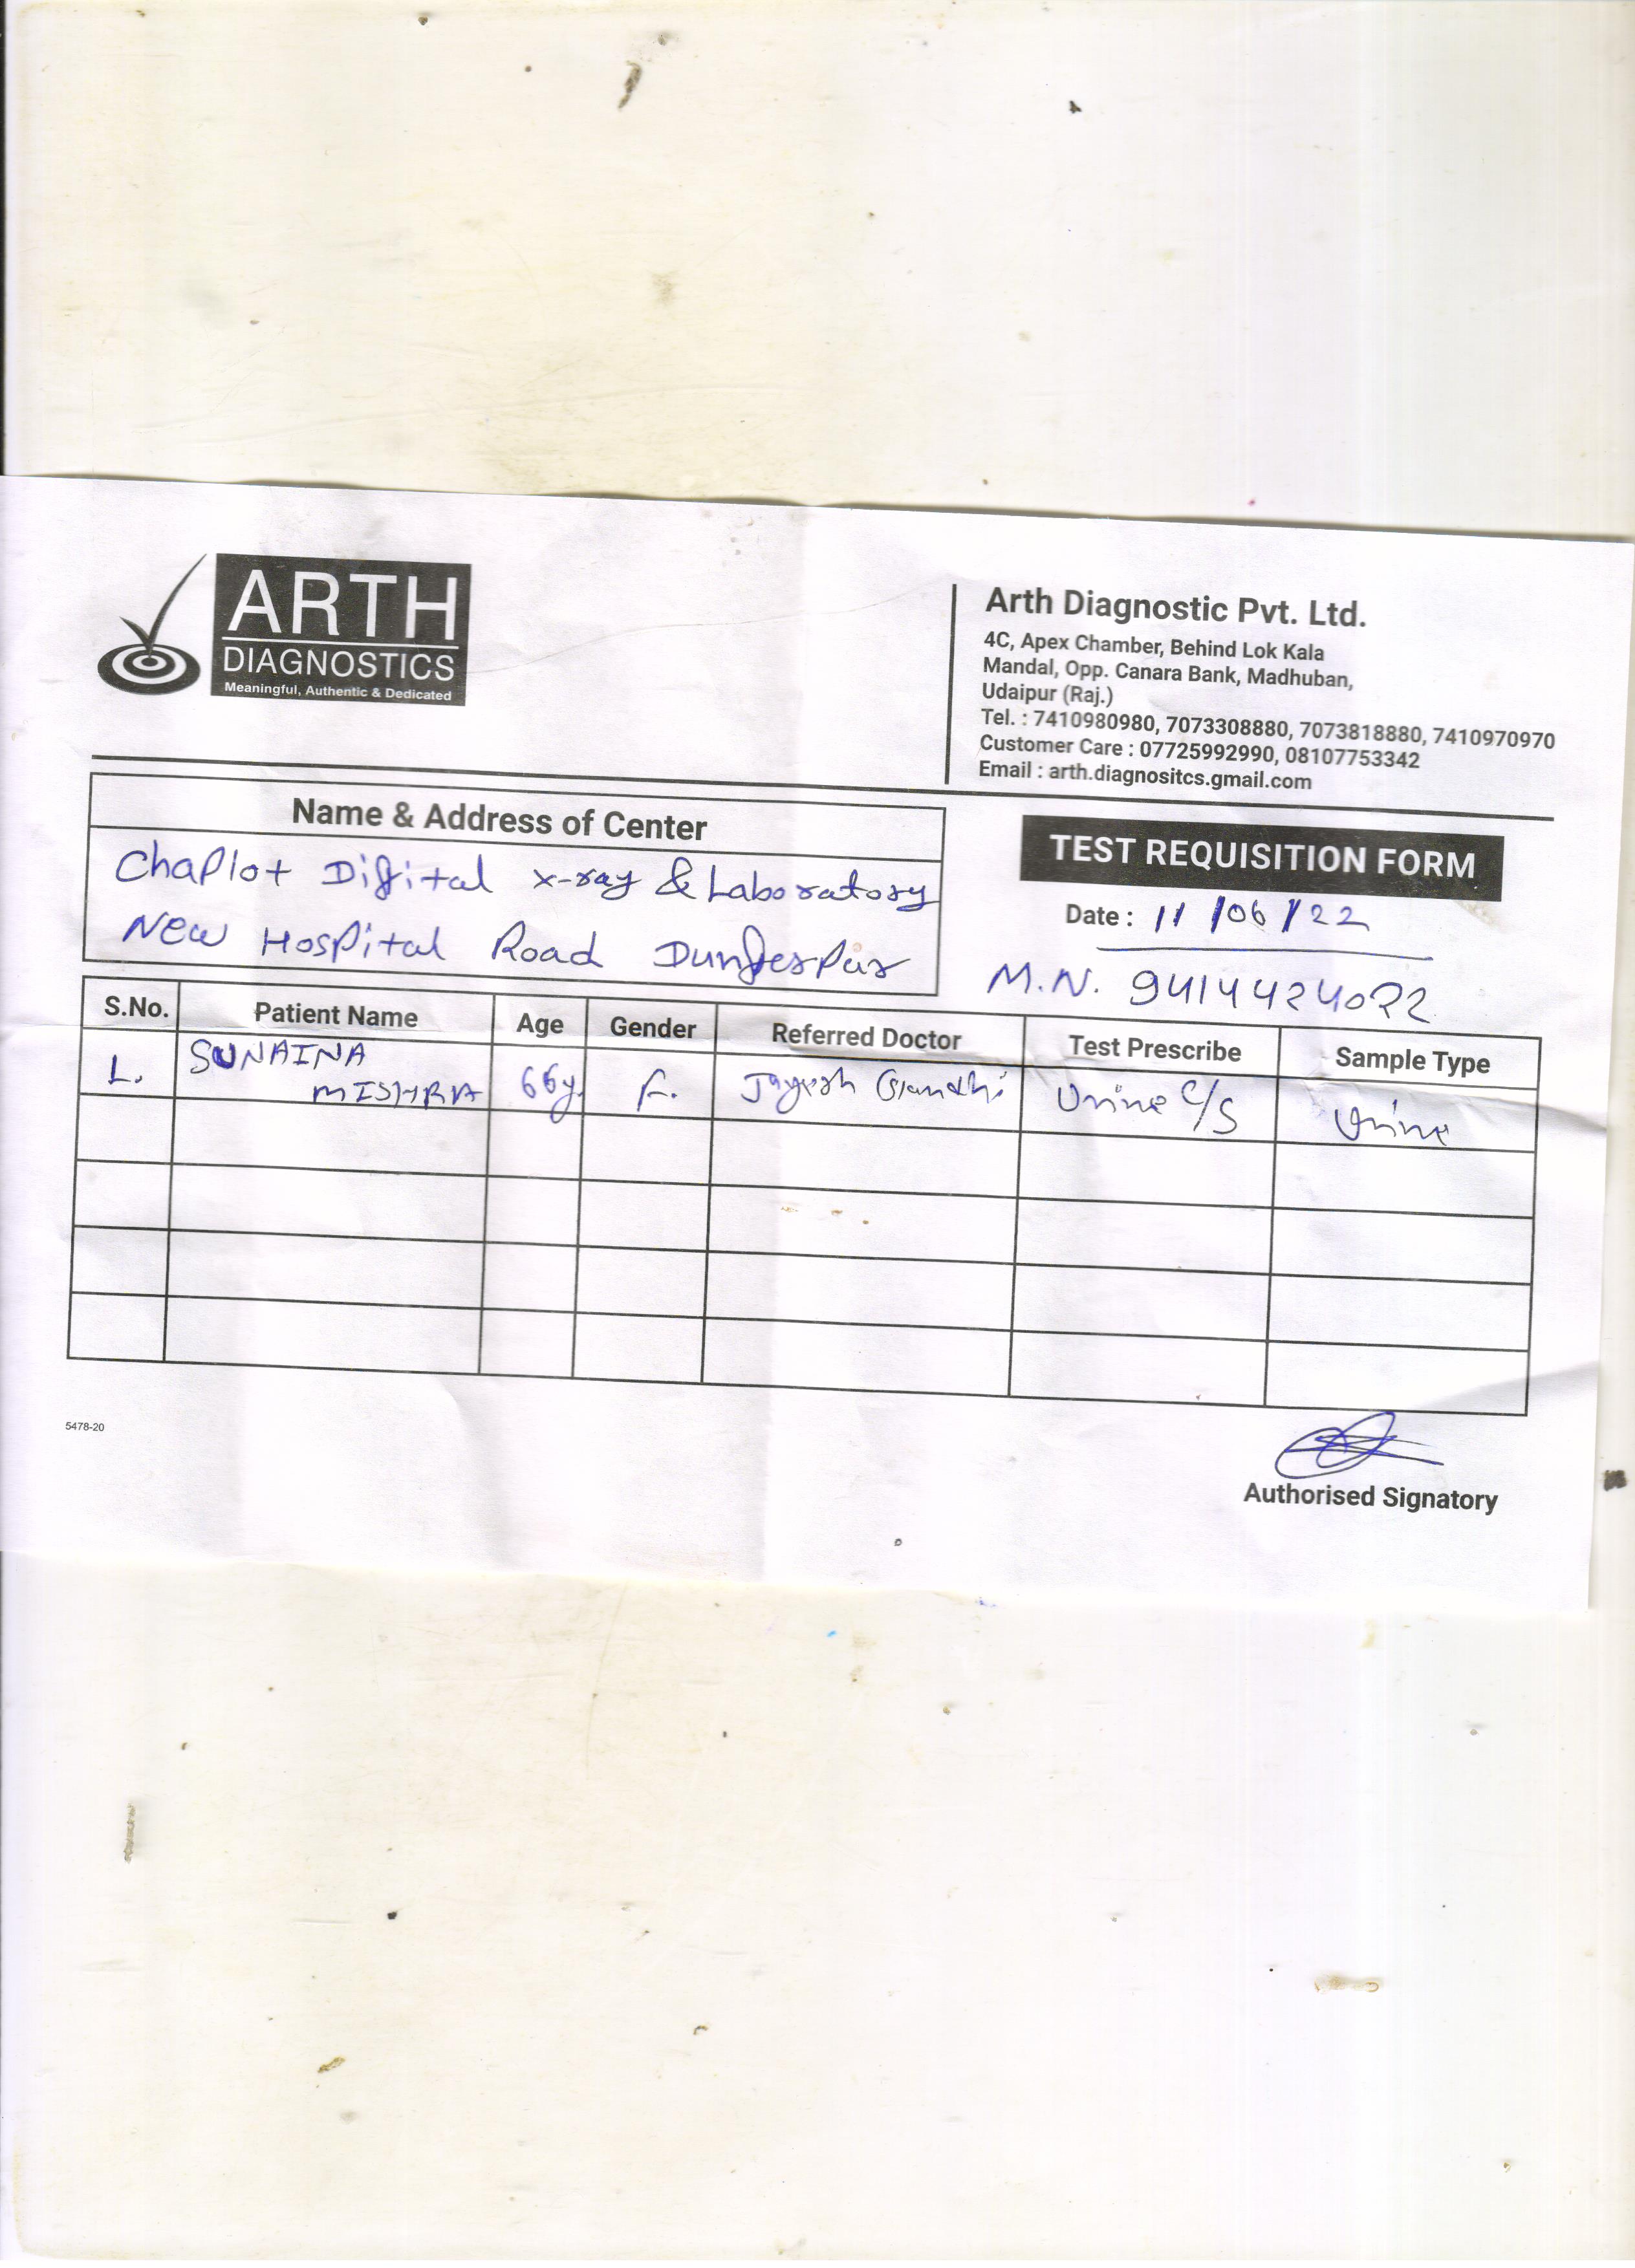 ARTH
DIAGNOSTICS
Meaningful, Authentic & Dedicated
Arth Diagnostic Pvt. Ltd.
4C, Apex Chamber, Behind Lok Kala
Mandal, Opp. Canara Bank, Madhuban,
Udaipur (Raj.)
Tel. : 7410980980, 7073308880, 7073818880, 7410970970
Customer Care : 07725992990, 08107753342
Email : arth.diagnositcs.gmail.com
Name & Address of Center
Chaplot Digital x-ray & Laboratory
New Hospital Road Dungerpur
TEST REQUISITION FORM
Date : 11/06/22
M.N. 9414424022
S.No. Patient Name Age Gender Referred Doctor Test Prescribe Sample Type
1. SUNAINA MISHRA 66y. F. Jayesh Gandhi Urine C/S Urine
5478-20
Authorised Signatory